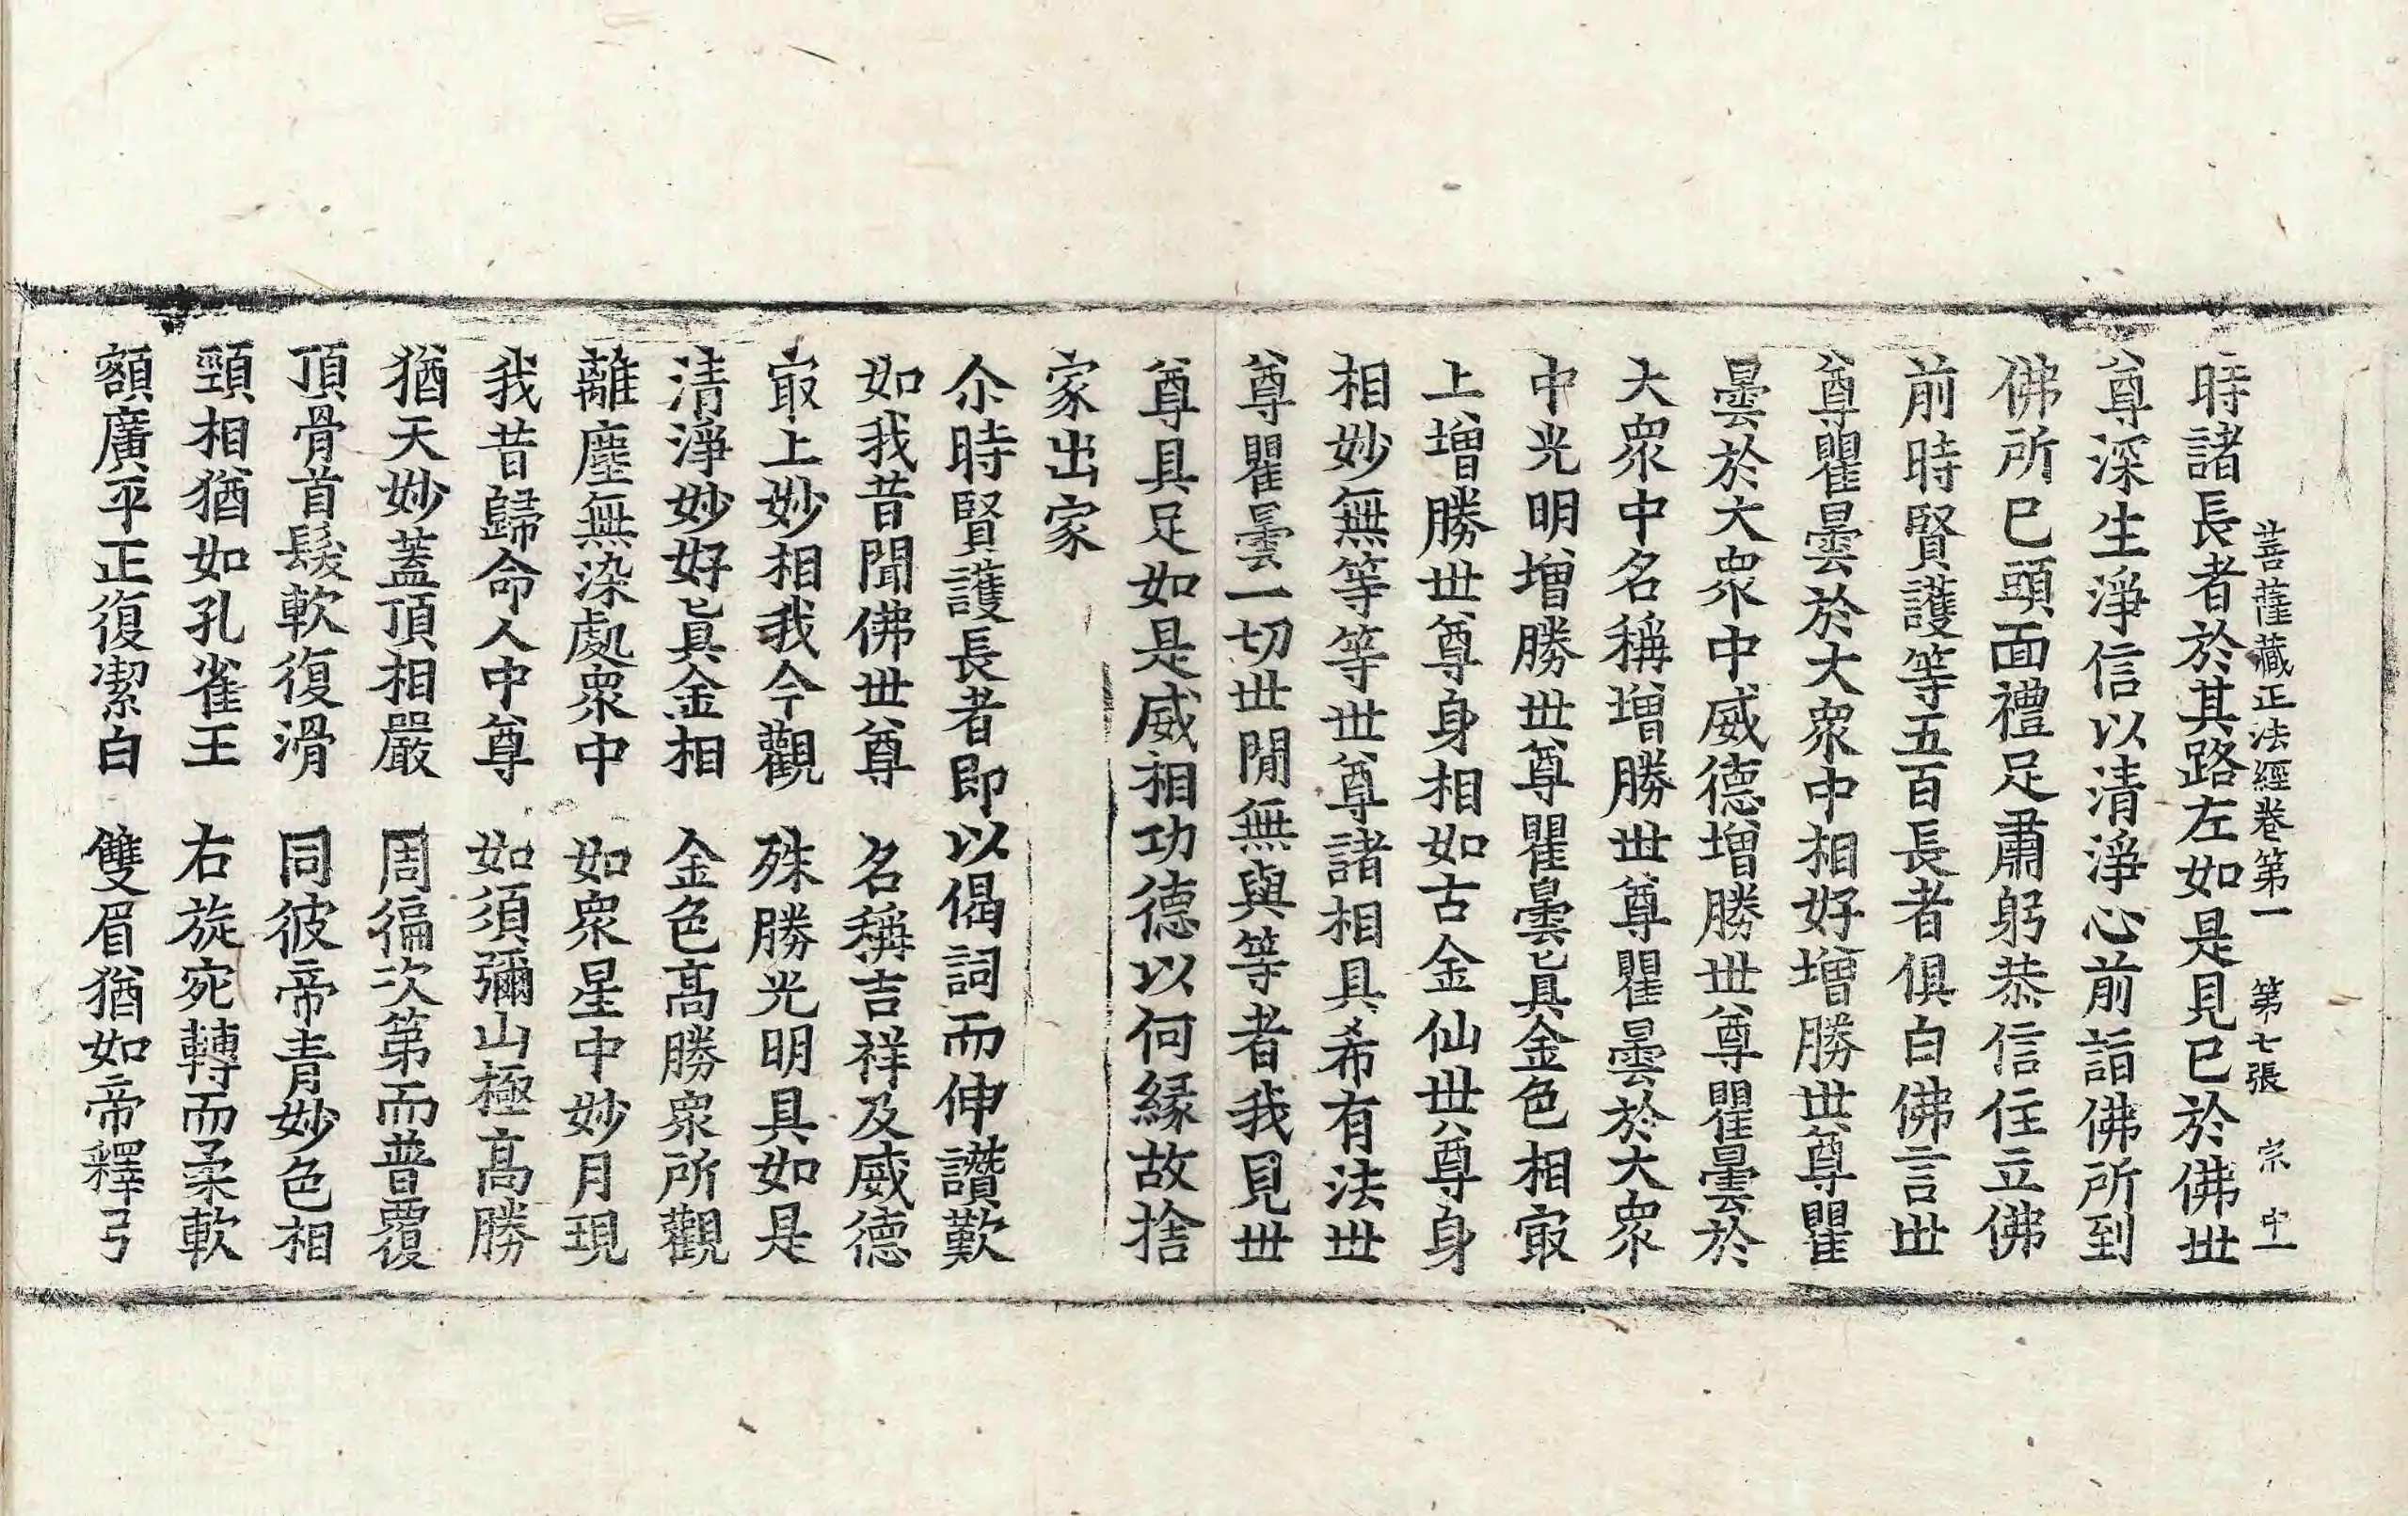 菩薩藏正法經卷第一　第七張　宗　中一
時諸長者於其路左如是見已於佛世
尊深生淨信以清淨心前詣佛所到
佛所已頭面禮足肅躬恭信住立佛
前時賢護等五百長者俱白佛言世
尊瞿曇於大眾中相好增勝世尊瞿
曇於大眾中威德增勝世尊瞿曇於
大眾中名稱增勝世尊瞿曇於大眾
中光明增勝世尊瞿曇已具金色相㝡
上增勝世尊身相如古金仙世尊身
相妙無等等世尊諸相具希有法世
尊瞿曇一切世間無與等者我見世
尊具足如是威相功德以何緣故捨
家出家
尒時賢護長者即以偈詞而伸讚歎
如我昔聞佛世尊　名稱吉祥及威德
㝡上妙相我今觀　殊勝光明具如是
清淨妙好已具金相　金色高勝眾所觀
離塵無染處眾中　如眾星中妙月現
我昔歸命人中尊　如須彌山極高勝
猶天妙蓋頂相嚴　周徧次第而普覆
頂骨首髮軟復滑　同彼帝青妙色相
頸相猶如孔雀王　右旋宛轉而柔軟
額廣平正復潔白　雙眉猶如帝釋弓